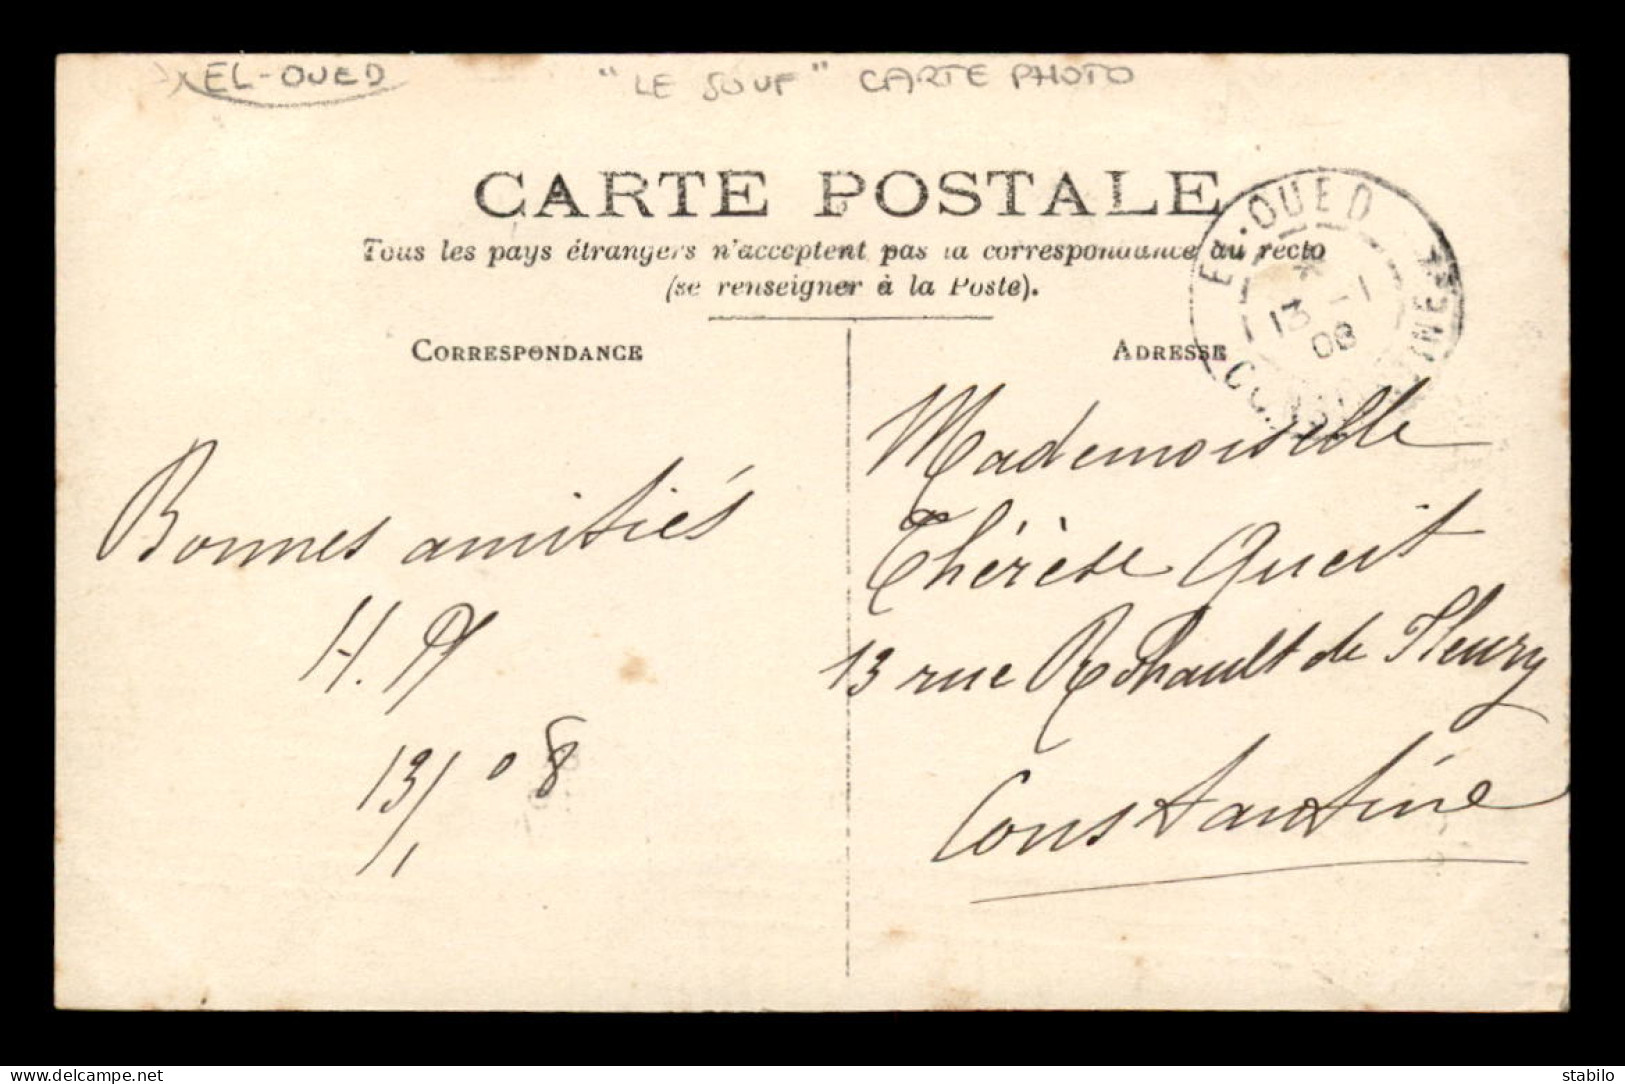 EL-OUED
"LE SOUF" CARTE PHOTO
CARTE POSTALE
Tous les pays étrangers n'acceptent pas la correspondance au recto
(se renseigner à la Poste).
EL-OUED
13 -1
08
CONSTANTINE
CORRESPONDANCE
ADRESSE
Bonnes amitiés
H. A
13/1 08
Mademoiselle
Thérèse Queit
13 rue Rohault de Fleury
Constantine
www.delcampe.net
stabilo